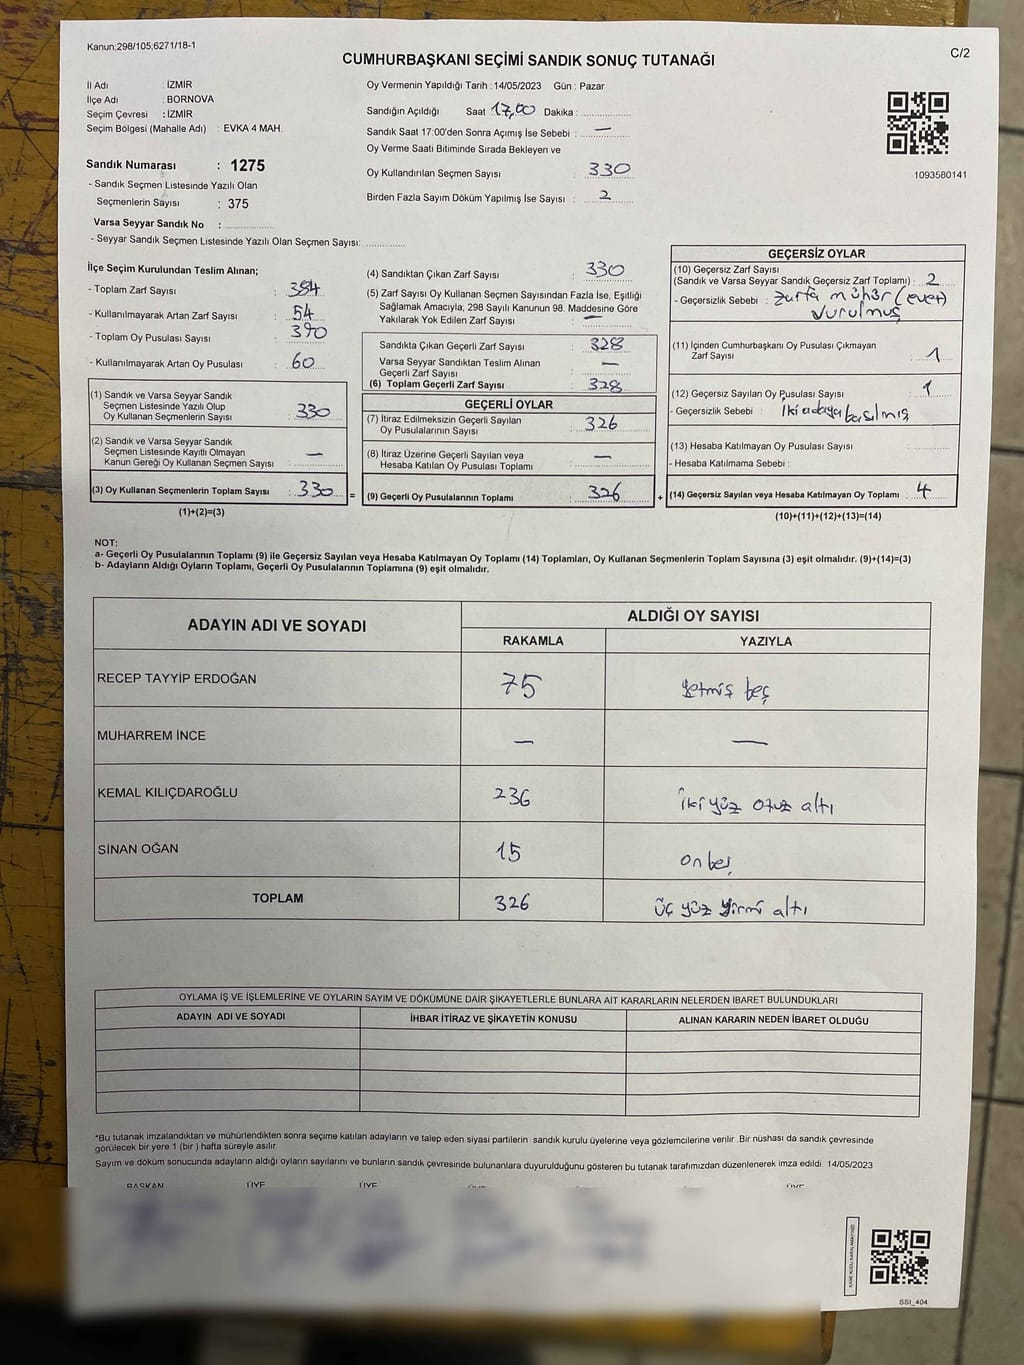 Kanun;298/105;6271/18-1
C/2
CUMHURBAŞKANI SEÇİMİ SANDIK SONUÇ TUTANAĞI
İl Adı : İZMİR
İlçe Adı : BORNOVA
Seçim Çevresi : İZMİR
Seçim Bölgesi (Mahalle Adı) : EVKA 4 MAH.
Sandık Numarası : 1275
- Sandık Seçmen Listesinde Yazılı Olan
Seçmenlerin Sayısı : 375
Varsa Seyyar Sandık No :
- Seyyar Sandık Seçmen Listesinde Yazılı Olan Seçmen Sayısı:
Oy Vermenin Yapıldığı Tarih :14/05/2023 Gün : Pazar
Sandığın Açıldığı Saat 17,00 Dakika :
Sandık Saat 17:00'den Sonra Açımış İse Sebebi : —
Oy Verme Saati Bitiminde Sırada Bekleyen ve
Oy Kullandırılan Seçmen Sayısı : 330
Birden Fazla Sayım Döküm Yapılmış İse Sayısı : 2
1093580141
İlçe Seçim Kurulundan Teslim Alınan;
- Toplam Zarf Sayısı : 384
- Kullanılmayarak Artan Zarf Sayısı : 54
- Toplam Oy Pusulası Sayısı : 390
- Kullanılmayarak Artan Oy Pusulası : 60
(1) Sandık ve Varsa Seyyar Sandık
Seçmen Listesinde Yazılı Olup
Oy Kullanan Seçmenlerin Sayısı : 330
(2) Sandık ve Varsa Seyyar Sandık
Seçmen Listesinde Kayıtlı Olmayan
Kanun Gereği Oy Kullanan Seçmen Sayısı : —
(3) Oy Kullanan Seçmenlerin Toplam Sayısı : 330 =
(1)+(2)=(3)
(4) Sandıktan Çıkan Zarf Sayısı : 330
(5) Zarf Sayısı Oy Kullanan Seçmen Sayısından Fazla İse, Eşitliği
Sağlamak Amacıyla, 298 Sayılı Kanunun 98. Maddesine Göre
Yakılarak Yok Edilen Zarf Sayısı : —
Sandıkta Çıkan Geçerli Zarf Sayısı : 328
Varsa Seyyar Sandıktan Teslim Alınan
Geçerli Zarf Sayısı : —
(6) Toplam Geçerli Zarf Sayısı : 328
GEÇERLİ OYLAR
(7) İtiraz Edilmeksizin Geçerli Sayılan
Oy Pusulalarının Sayısı : 326
(8) İtiraz Üzerine Geçerli Sayılan veya
Hesaba Katılan Oy Pusulası Toplamı : —
(9) Geçerli Oy Pusulalarının Toplamı : 326 +
GEÇERSİZ OYLAR
(10) Geçersiz Zarf Sayısı
(Sandık ve Varsa Seyyar Sandık Geçersiz Zarf Toplamı) : 2
- Geçersizlik Sebebi : Zarfa mühür (evet)
vurulmuş
(11) İçinden Cumhurbaşkanı Oy Pusulası Çıkmayan
Zarf Sayısı : 1
(12) Geçersiz Sayılan Oy Pusulası Sayısı : 1
- Geçersizlik Sebebi : İki adaya basılmış
(13) Hesaba Katılmayan Oy Pusulası Sayısı :
- Hesaba Katılmama Sebebi :
(14) Geçersiz Sayılan veya Hesaba Katılmayan Oy Toplamı : 4
(10)+(11)+(12)+(13)=(14)
NOT:
a- Geçerli Oy Pusulalarının Toplamı (9) ile Geçersiz Sayılan veya Hesaba Katılmayan Oy Toplamı (14) Toplamları, Oy Kullanan Seçmenlerin Toplam Sayısına (3) eşit olmalıdır. (9)+(14)=(3)
b- Adayların Aldığı Oyların Toplamı, Geçerli Oy Pusulalarının Toplamına (9) eşit olmalıdır.
ADAYIN ADI VE SOYADI
ALDIĞI OY SAYISI
RAKAMLA YAZIYLA
RECEP TAYYİP ERDOĞAN 75 yetmiş beş
MUHARREM İNCE — —
KEMAL KILIÇDAROĞLU 236 iki yüz otuz altı
SİNAN OĞAN 15 on beş
TOPLAM 326 üç yüz yirmi altı
OYLAMA İŞ VE İŞLEMLERİNE VE OYLARIN SAYIM VE DÖKÜMÜNE DAİR ŞİKAYETLERLE BUNLARA AİT KARARLARIN NELERDEN İBARET BULUNDUKLARI
ADAYIN ADI VE SOYADI İHBAR İTİRAZ VE ŞİKAYETİN KONUSU ALINAN KARARIN NEDEN İBARET OLDUĞU
*Bu tutanak imzalandıktan ve mühürlendikten sonra seçime katılan adayların ve talep eden siyasi partilerin sandık kurulu üyelerine veya gözlemcilerine verilir .Bir nüshası da sandık çevresinde
görülecek bir yere 1 (bir ) hafta süreyle asılır.
Sayım ve döküm sonucunda adayların aldığı oyların sayılarını ve bunların sandık çevresinde bulunanlara duyurulduğunu gösteren bu tutanak tarafımızdan düzenlenerek imza edildi. 14/05/2023
BAŞKAN ÜYE ÜYE ÜYE ÜYE
KARE KODU KARALAMAYINIZ!
SSI_404